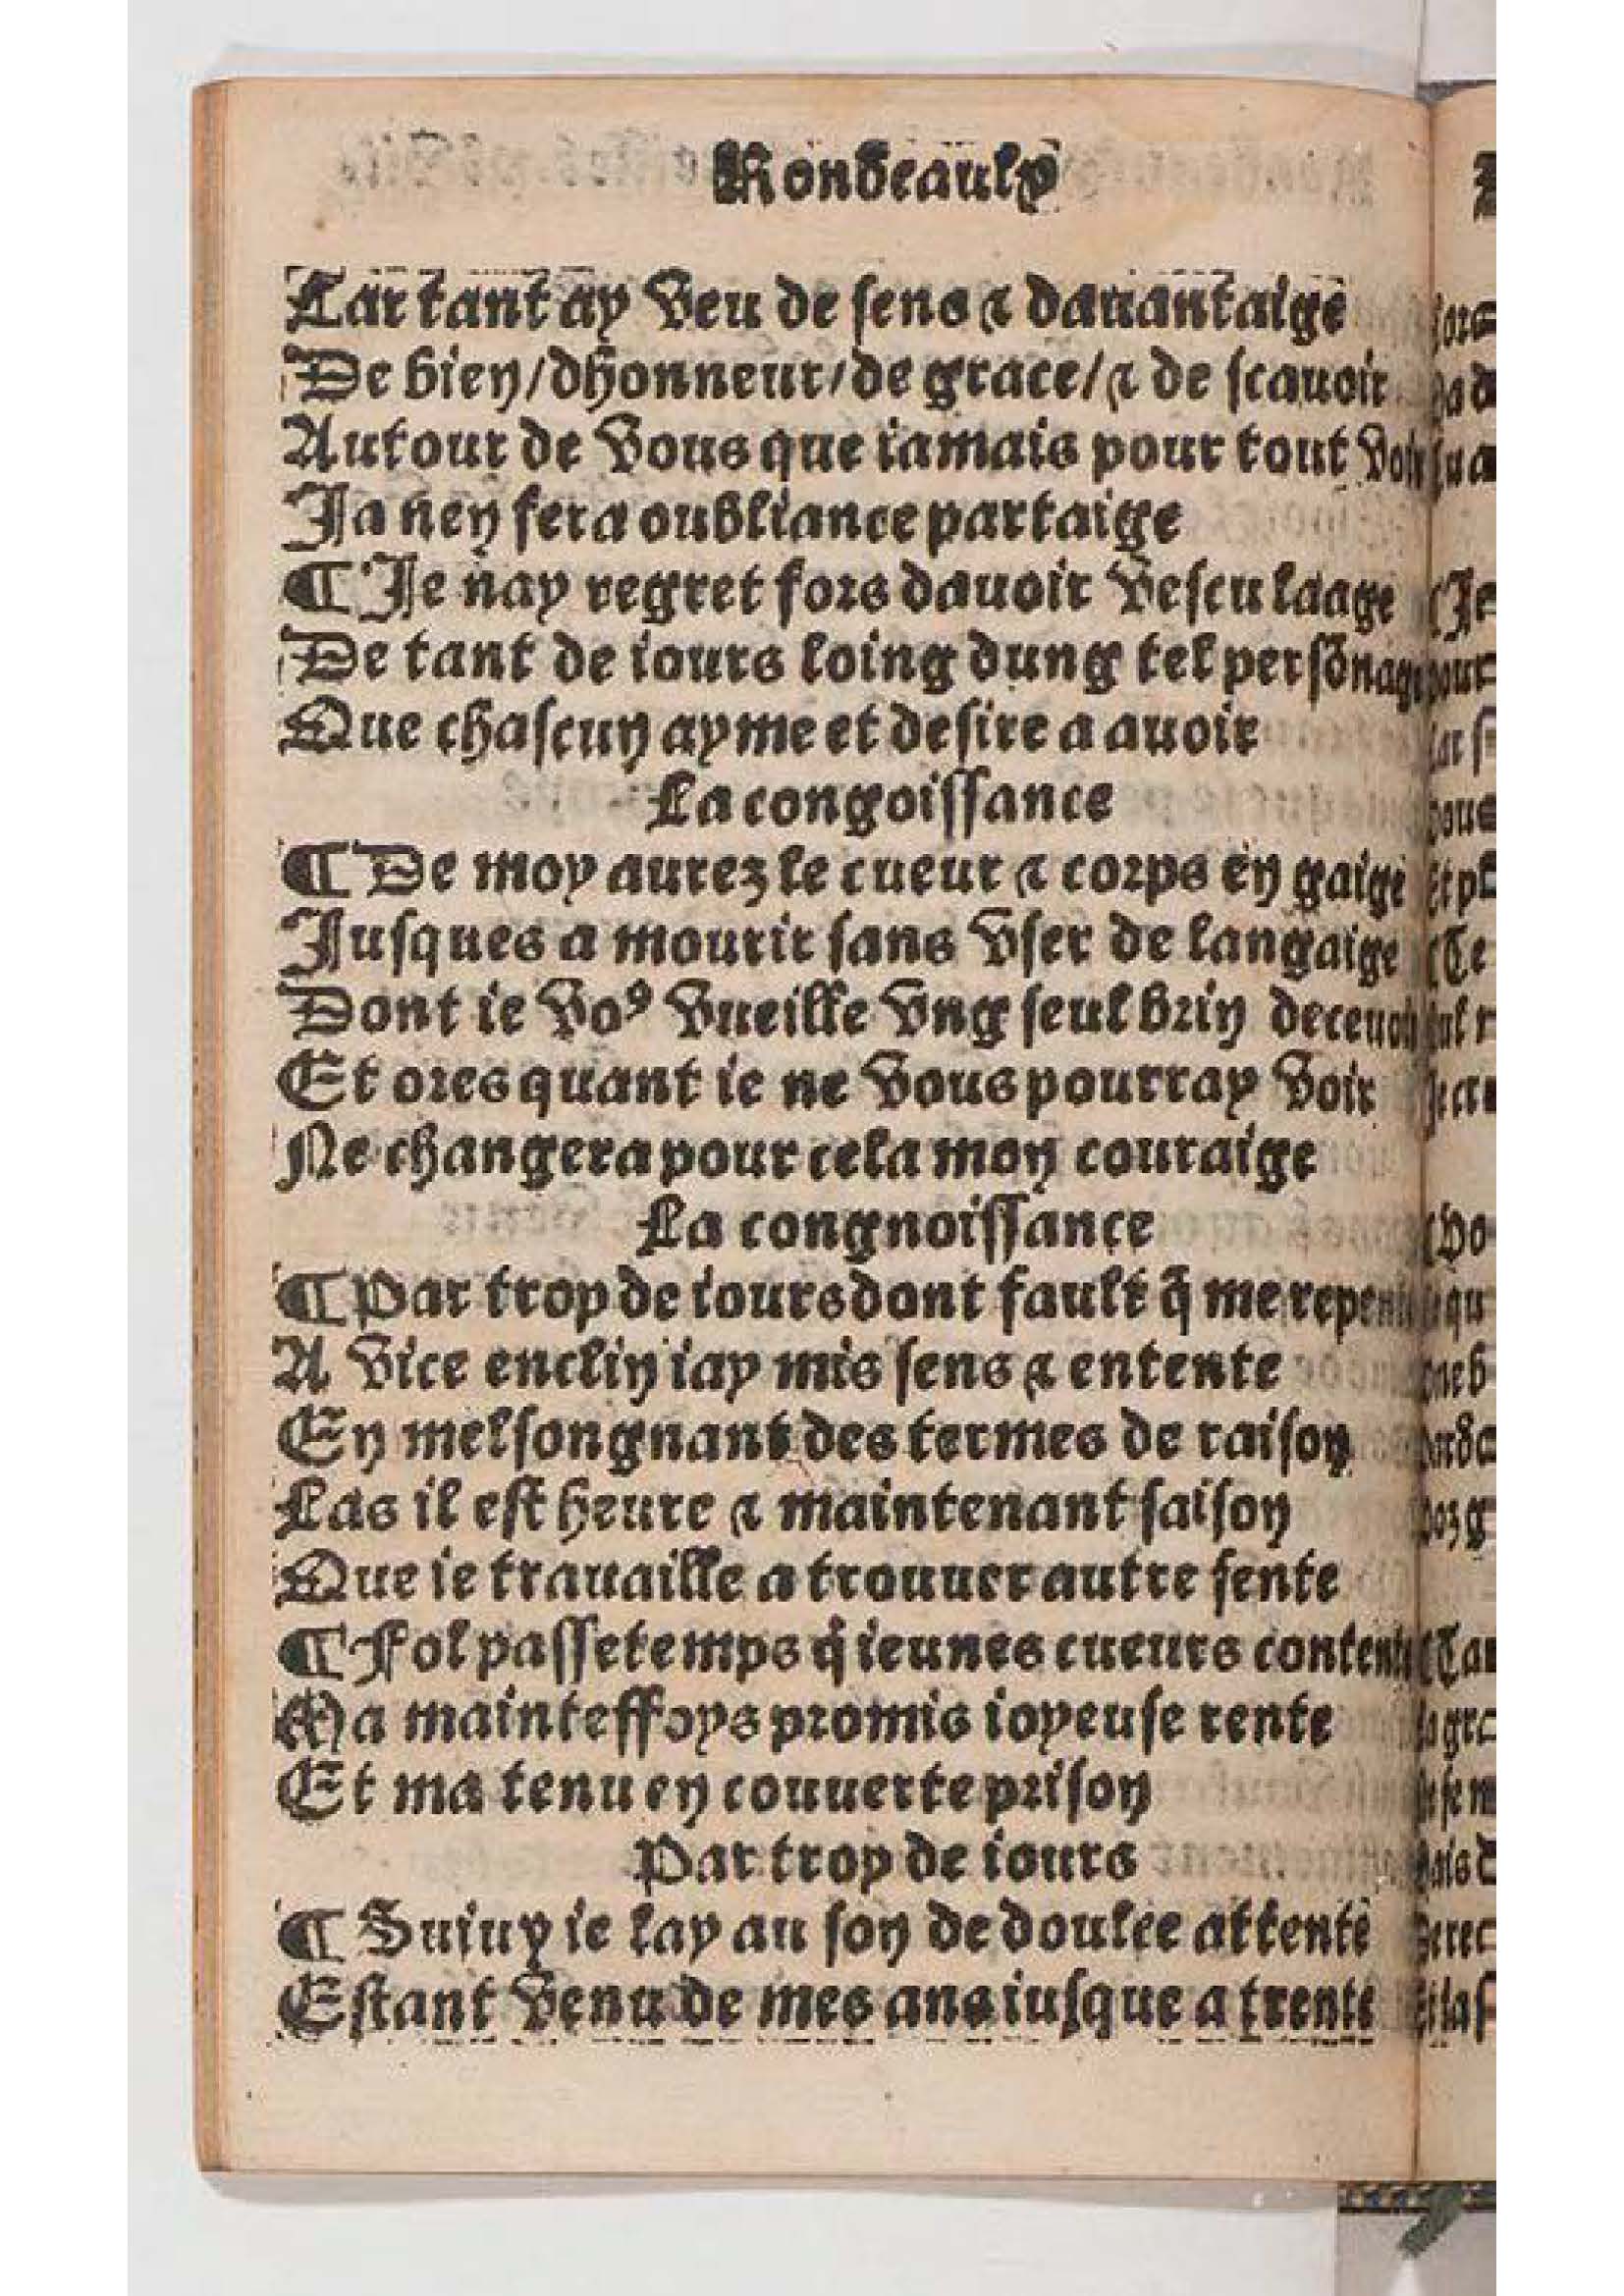 Rondeaulx
Car tant ay veu de sens & dauantaige
De bien/dhonneur/de grace/& de scauoir
Autour de vous que iamais pour tout voir
Ja nen fera oubliance partaige
¶ Je nay regret fors dauoir vescu laage
De tant de iours loing dung tel persōnage
Que chascun ayme et desire a auoir
La congoissance
¶ De moy aurez le cueur & corps en gaige
Jusques a mourir sans vser de langaige
Dont ie voꝰ vueille vng seul brin deceuoir
Et ores quant ie ne vous pourray voir
Ne changera pour cela mon couraige
La congnoissance
¶ Par trop de iours dont fault q̄ me repente
A vice enclin iay mis sens & entente
En meslongnant des termes de raison
Las il est heure & maintenant saison
Que ie trauaille a trouuer autre sente
¶ Fol passetemps q̇ ieunes cueurs contente
Ma mainteffoys promis ioyeuse rente
Et ma tenu en couuerte prison
Par trop de iours
¶ Suiuy ie lay au son de doulce attente
Estant venu de mes ans iusque a trente